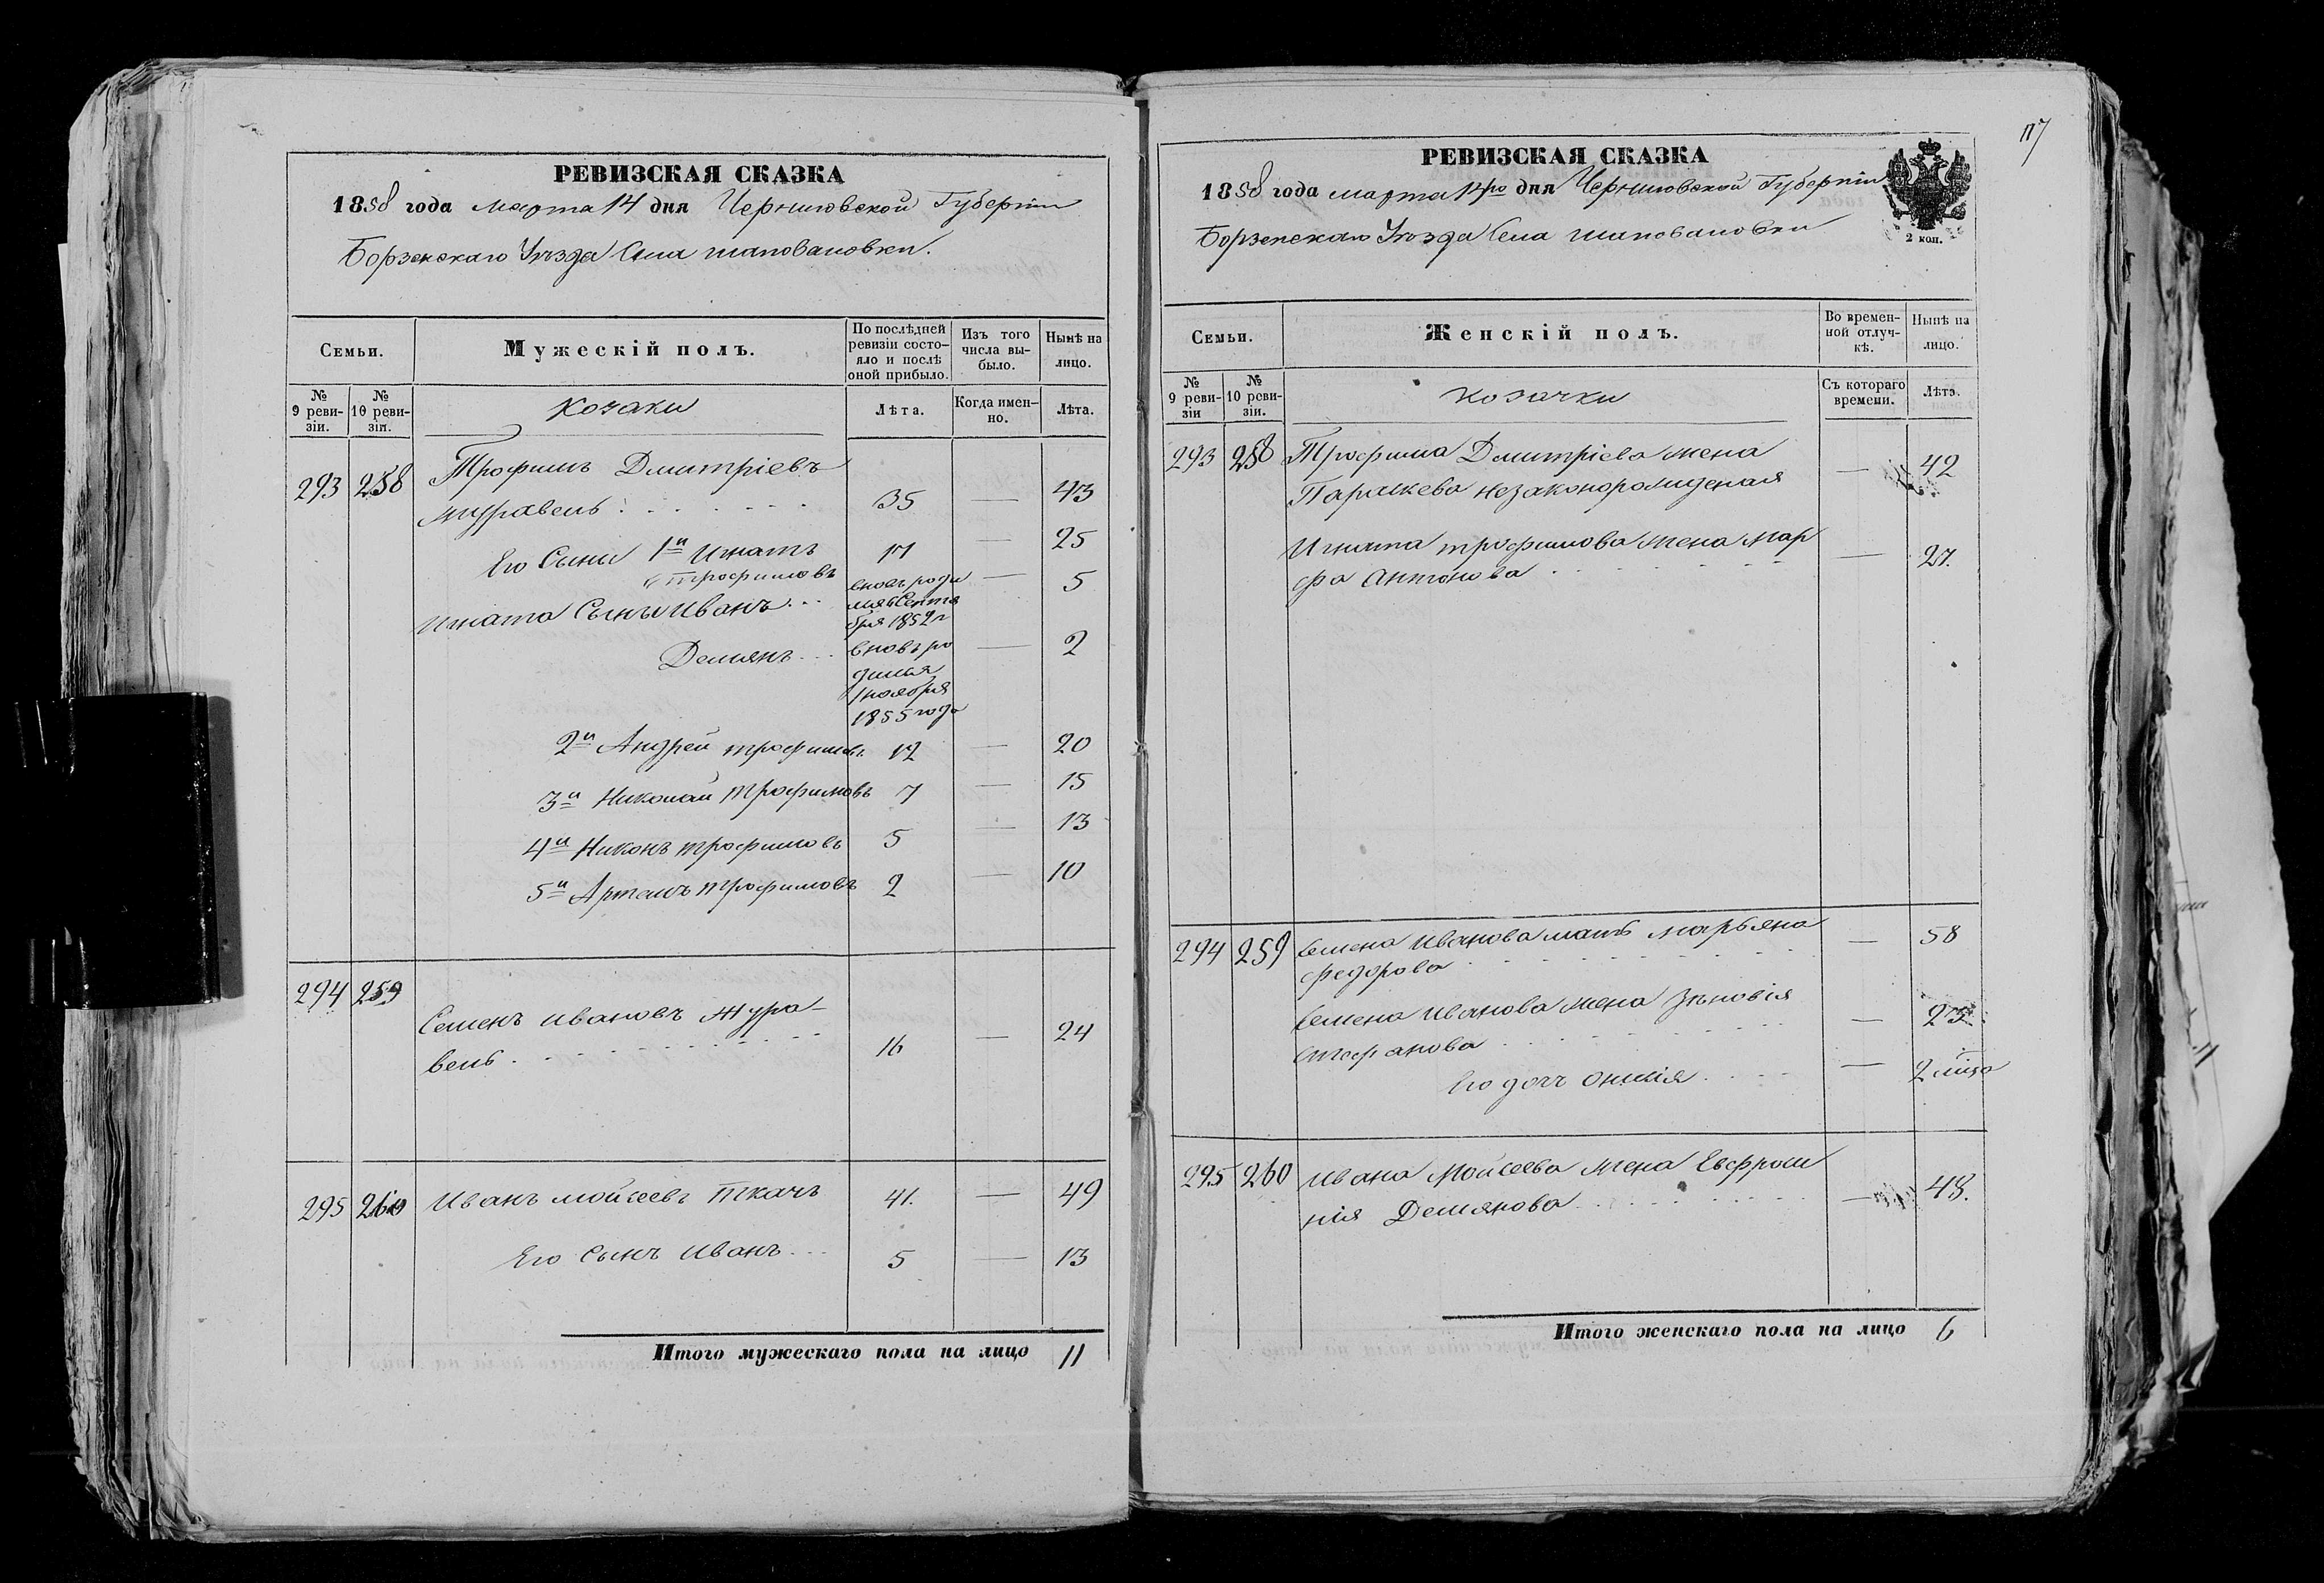 РЕВИЗСКАЯ СКАЗКА
1858 года марта 14 дня Черниговской Губернии
Борзенскаго Уезда Села шаповаловки.
Семьи.
Мужескій полъ.
По послѣдней ревизіи состо-
яло и послѣ
оной прибыло.
Изъ того
числа вы-
было.
Нынѣ на
лицо.
№
9 реви-
зіи.
№
10 реви-
зіи.
Козаки
Лѣта.
Когда имен-
но.
Лѣта.
293 258 Трофимъ Дмитріевъ
журавель 35 — 43
Его Сыны 1й Игнатъ 17 — 25
трофимовъ
Игната Сыны Иванъ вновь роди — 5
лся Сентя
бря 1852 г
Демянъ вновь ро — 2
дился
ноября
1855 года
2й Андрей трофимовъ 12 — 20
3й Николай трофимовъ 7 — 15
4й Никонъ трофимовъ 5 — 13
5й Артемъ трофимовъ 2 — 10
294 259
Семенъ Ивановъ Жура-
вель 16 — 24
295 260 Иванъ Мойсеевъ Ткачъ 41. — 49
Его Сынъ Иванъ 5 — 13
Итого мужескаго пола на лицо 11
117
РЕВИЗСКАЯ СКАЗКА
1858 года марта 14го дня Черниговской Губерніи
Борзенскаго Уезда Села шаповаловки
2 коп.
Семьи.
Женскій полъ.
Во времен-
ной отлуч-
кѣ.
Нынѣ на
лицо.
№
9 реви-
зіи
№
10 реви-
зіи.
козачки
Съ котораго
времени.
Лѣта.
293 258 Трофима Дмитріева жена — 42
Параскева незаконорожденая
Игната трофимова жена мар — 27.
фа Антонова
294 259 Семена Иванова мать марьяна — 58
федорова
Семена Иванова жена Зѣновія — 25
Стефанова
Его дочъ — 2
295 260 Ивана Мойсеева жена Евфроси
нія Демянова — 48.
Итого женскаго пола на лицо 6